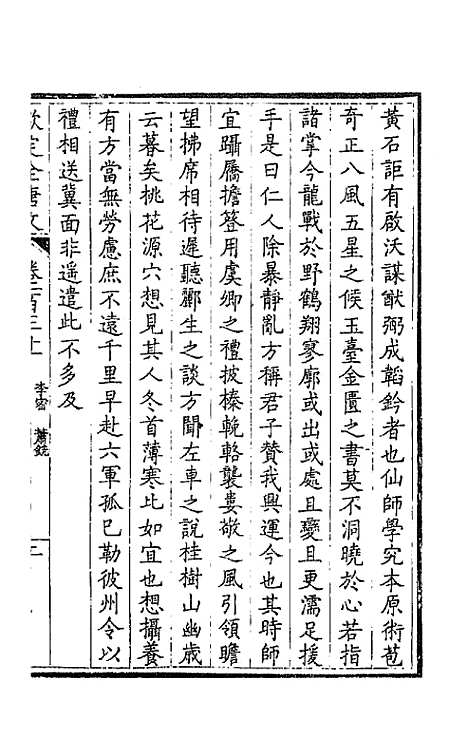 黃石詎有啟沃謀猷弼成韜鈐者也仙師學究本原術苞
奇正八風五星之候玉臺金匱之書莫不洞曉於心若指
諸掌今龍戰於野鶴翔寥廓或出或處且變且更濡足援
手是曰仁人除暴靜亂方稱君子贊我興運今也其時師
宜躡屩擔簦用虞卿之禮披榛輓輅襲婁敬之風引領瞻
望拂席相待遲聽酈生之談方聞左車之說桂樹山幽歲
云暮矣桃花源穴想見其人冬首薄寒比如宜也想攝養
有方當無勞慮庶不遠千里早赴六軍孤已勒彼州令以
禮相送冀面非遥遣此不多及
欽定全唐文 卷一百三十 李密 蕭銑